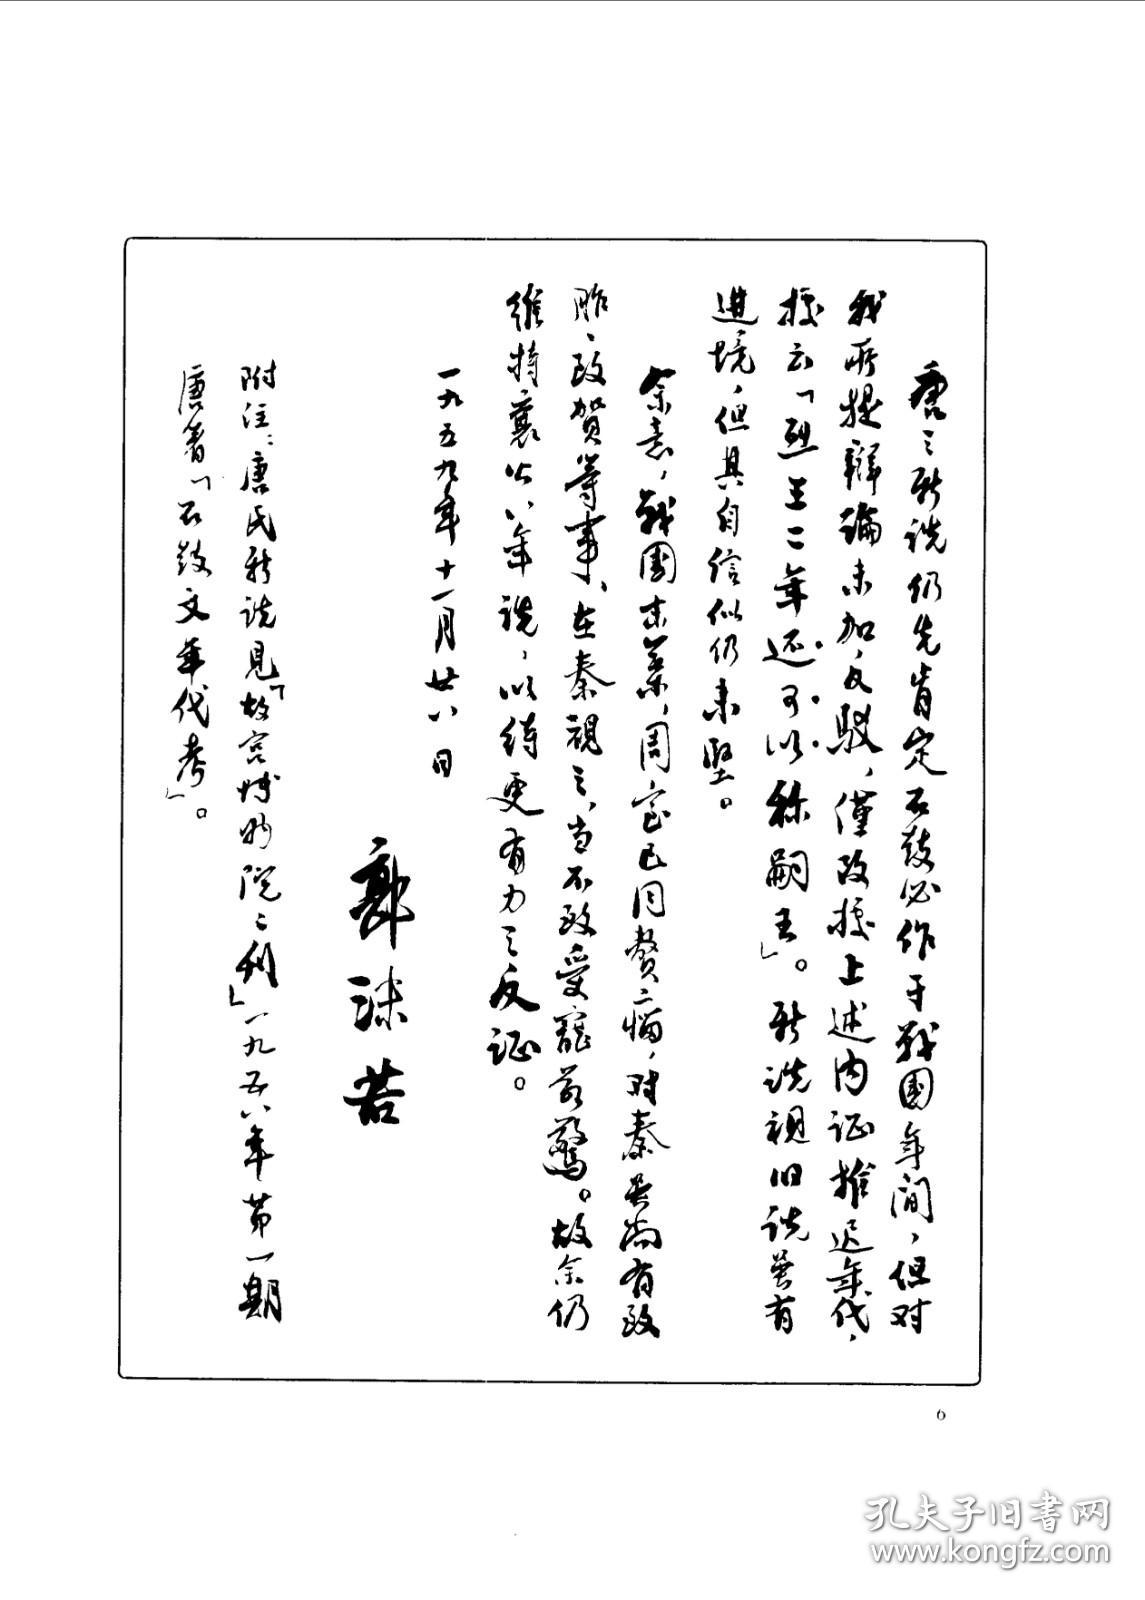 唐之新说仍先肯定石鼓必作于战国年间，但对
我所提辩论未加反驳，仅改据上述内证推迟年代，
据云「烈王二年还可以称嗣王」。新说视旧说虽有
进境，但其自信似仍未坚。
余意，战国末叶，周室已同赘瘤，对秦虽尚有致
胙、致贺等事，在秦视之，当不致受宠若惊。故余仍
维持襄公八年说，以待更有力之反证。
一九五九年十一月廿八日
郭沫若
附注：唐氏新说见「故宫博物院院刊」一九五八年第一期
唐著「石鼓文年代考」。
6
孔夫子旧书网
www.kongfz.com